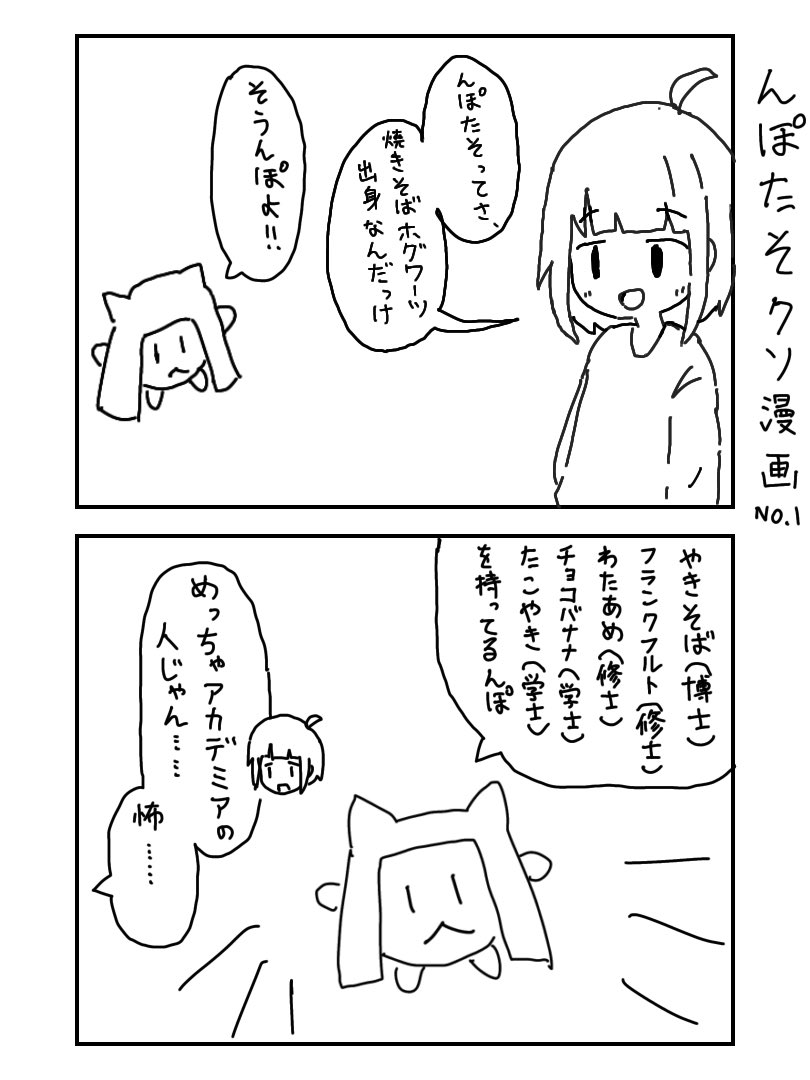 んぽたそクソ漫画
NO.1
んぽたそってさ、
焼きそばホグワーツ
出身なんだっけ
そうんぽよ!!
やきそば(博士)
フランクフルト(修士)
わたあめ(修士)
チョコバナナ(学士)
たこやき(学士)
を持ってるんぽ
めっちゃアカデミアの
人じゃん……
怖……